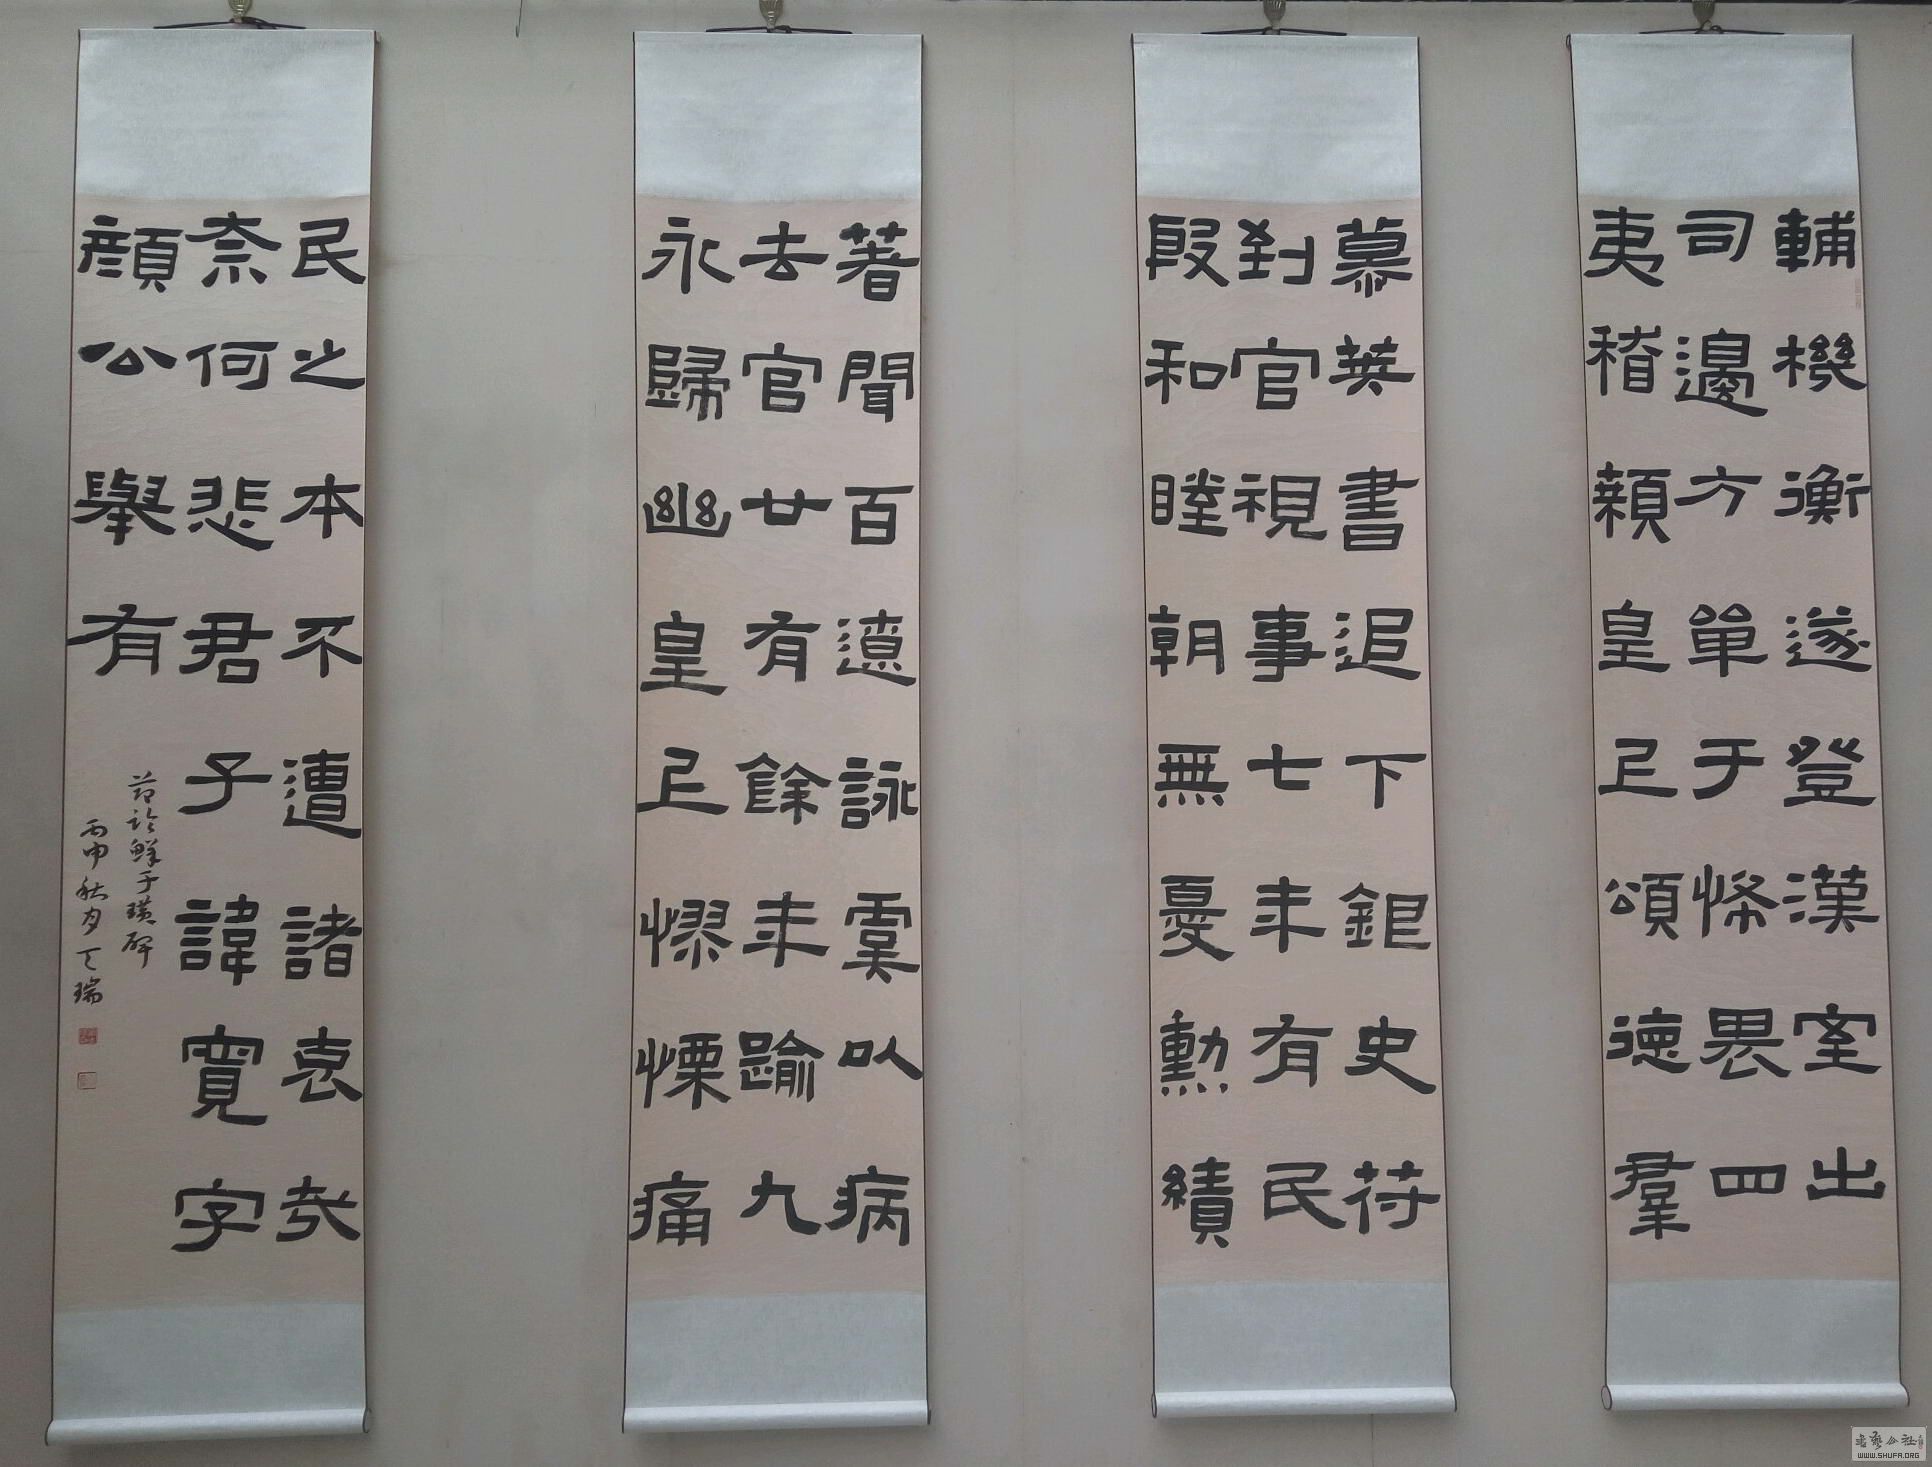 輔機衡遂登漢室出
司邊方單于怖畏四
夷稽顙皇上頌德羣
慕英書追下銀史符
到官視事七年有民
殷和睦朝無憂勳績
著聞百遼詠虞以病
去官廿有餘年踰九
永歸幽皇上憀慄痛
民之本不遭諸哀哉
奈何悲君子諱寬字
顏公舉有
節臨鮮于璜碑
丙申秋月丁瑞
書藝公社
WWW.SHUFA.ORG